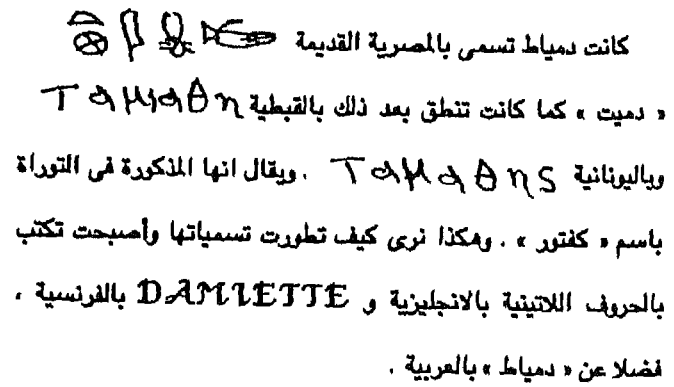 كانت دمياط تسمى بالمصرية القديمة
« دميت » كما كانت تنطق بعد ذلك بالقبطية
وباليونانية . ويقال انها المذكورة فى التوراة
باسم « كفتور » . وهكذا نرى كيف تطورت تسمياتها وأصبحت تكتب
بالحروف اللاتينية بالانجليزية و DAMIETTE بالفرنسية ،
فضلا عن « دمياط » بالعربية .